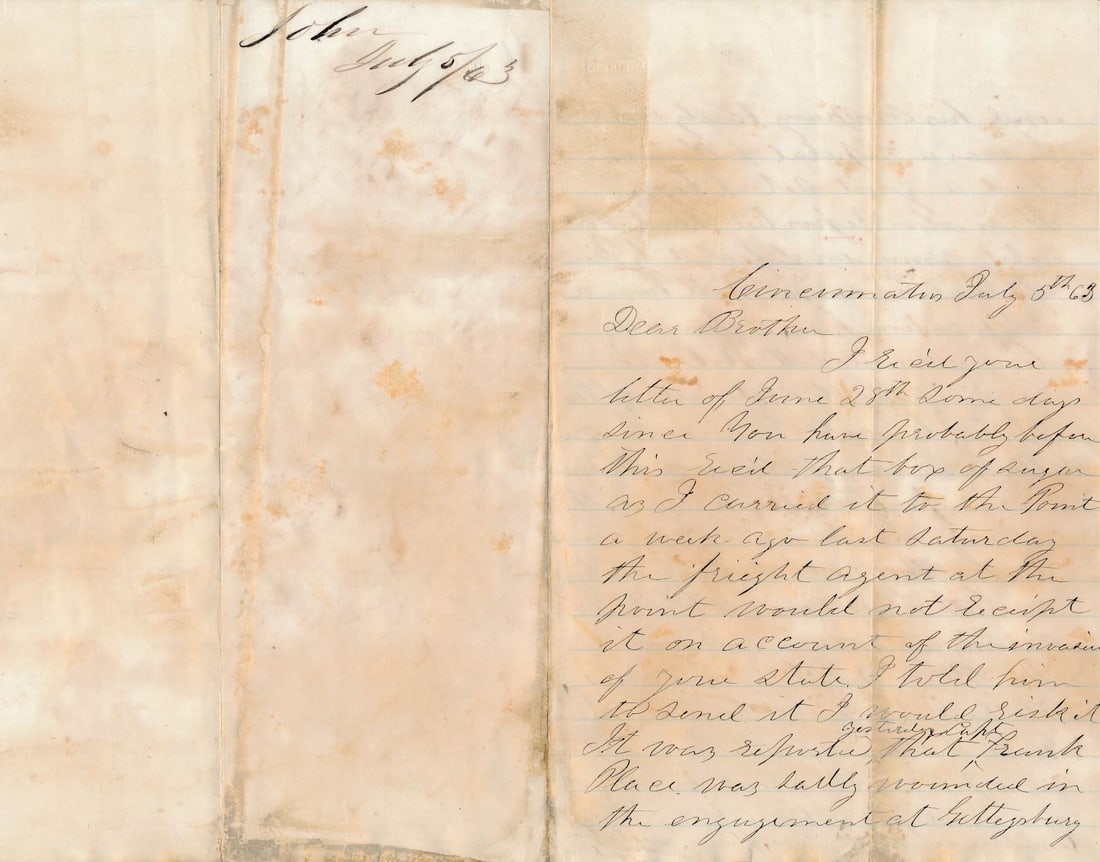 John
July 5/63
Cincinnatus July 5th 63
Dear Brother
I Rec'd your
letter of June 28th some days
since You have probably before
this Rec'd that box of sugar
as I carried it to the Point
a week ago last Saturday
the frieght agent at the
point would not Reciept
it on account of the invasion
of your state. I told him
to send it I would risk it
It was reported yesterday that Capt Frank
Place was badly wounded in
the engagement at Gettegsburg